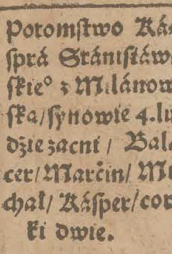 Potomstwo Ká
sprá Stánisłáw
skie° z Milánow
ská/synowie 4.lu
dzie zacni / Bal
cer/Marćin/ Mi
chał/ Kásper/cor
ki dwie.